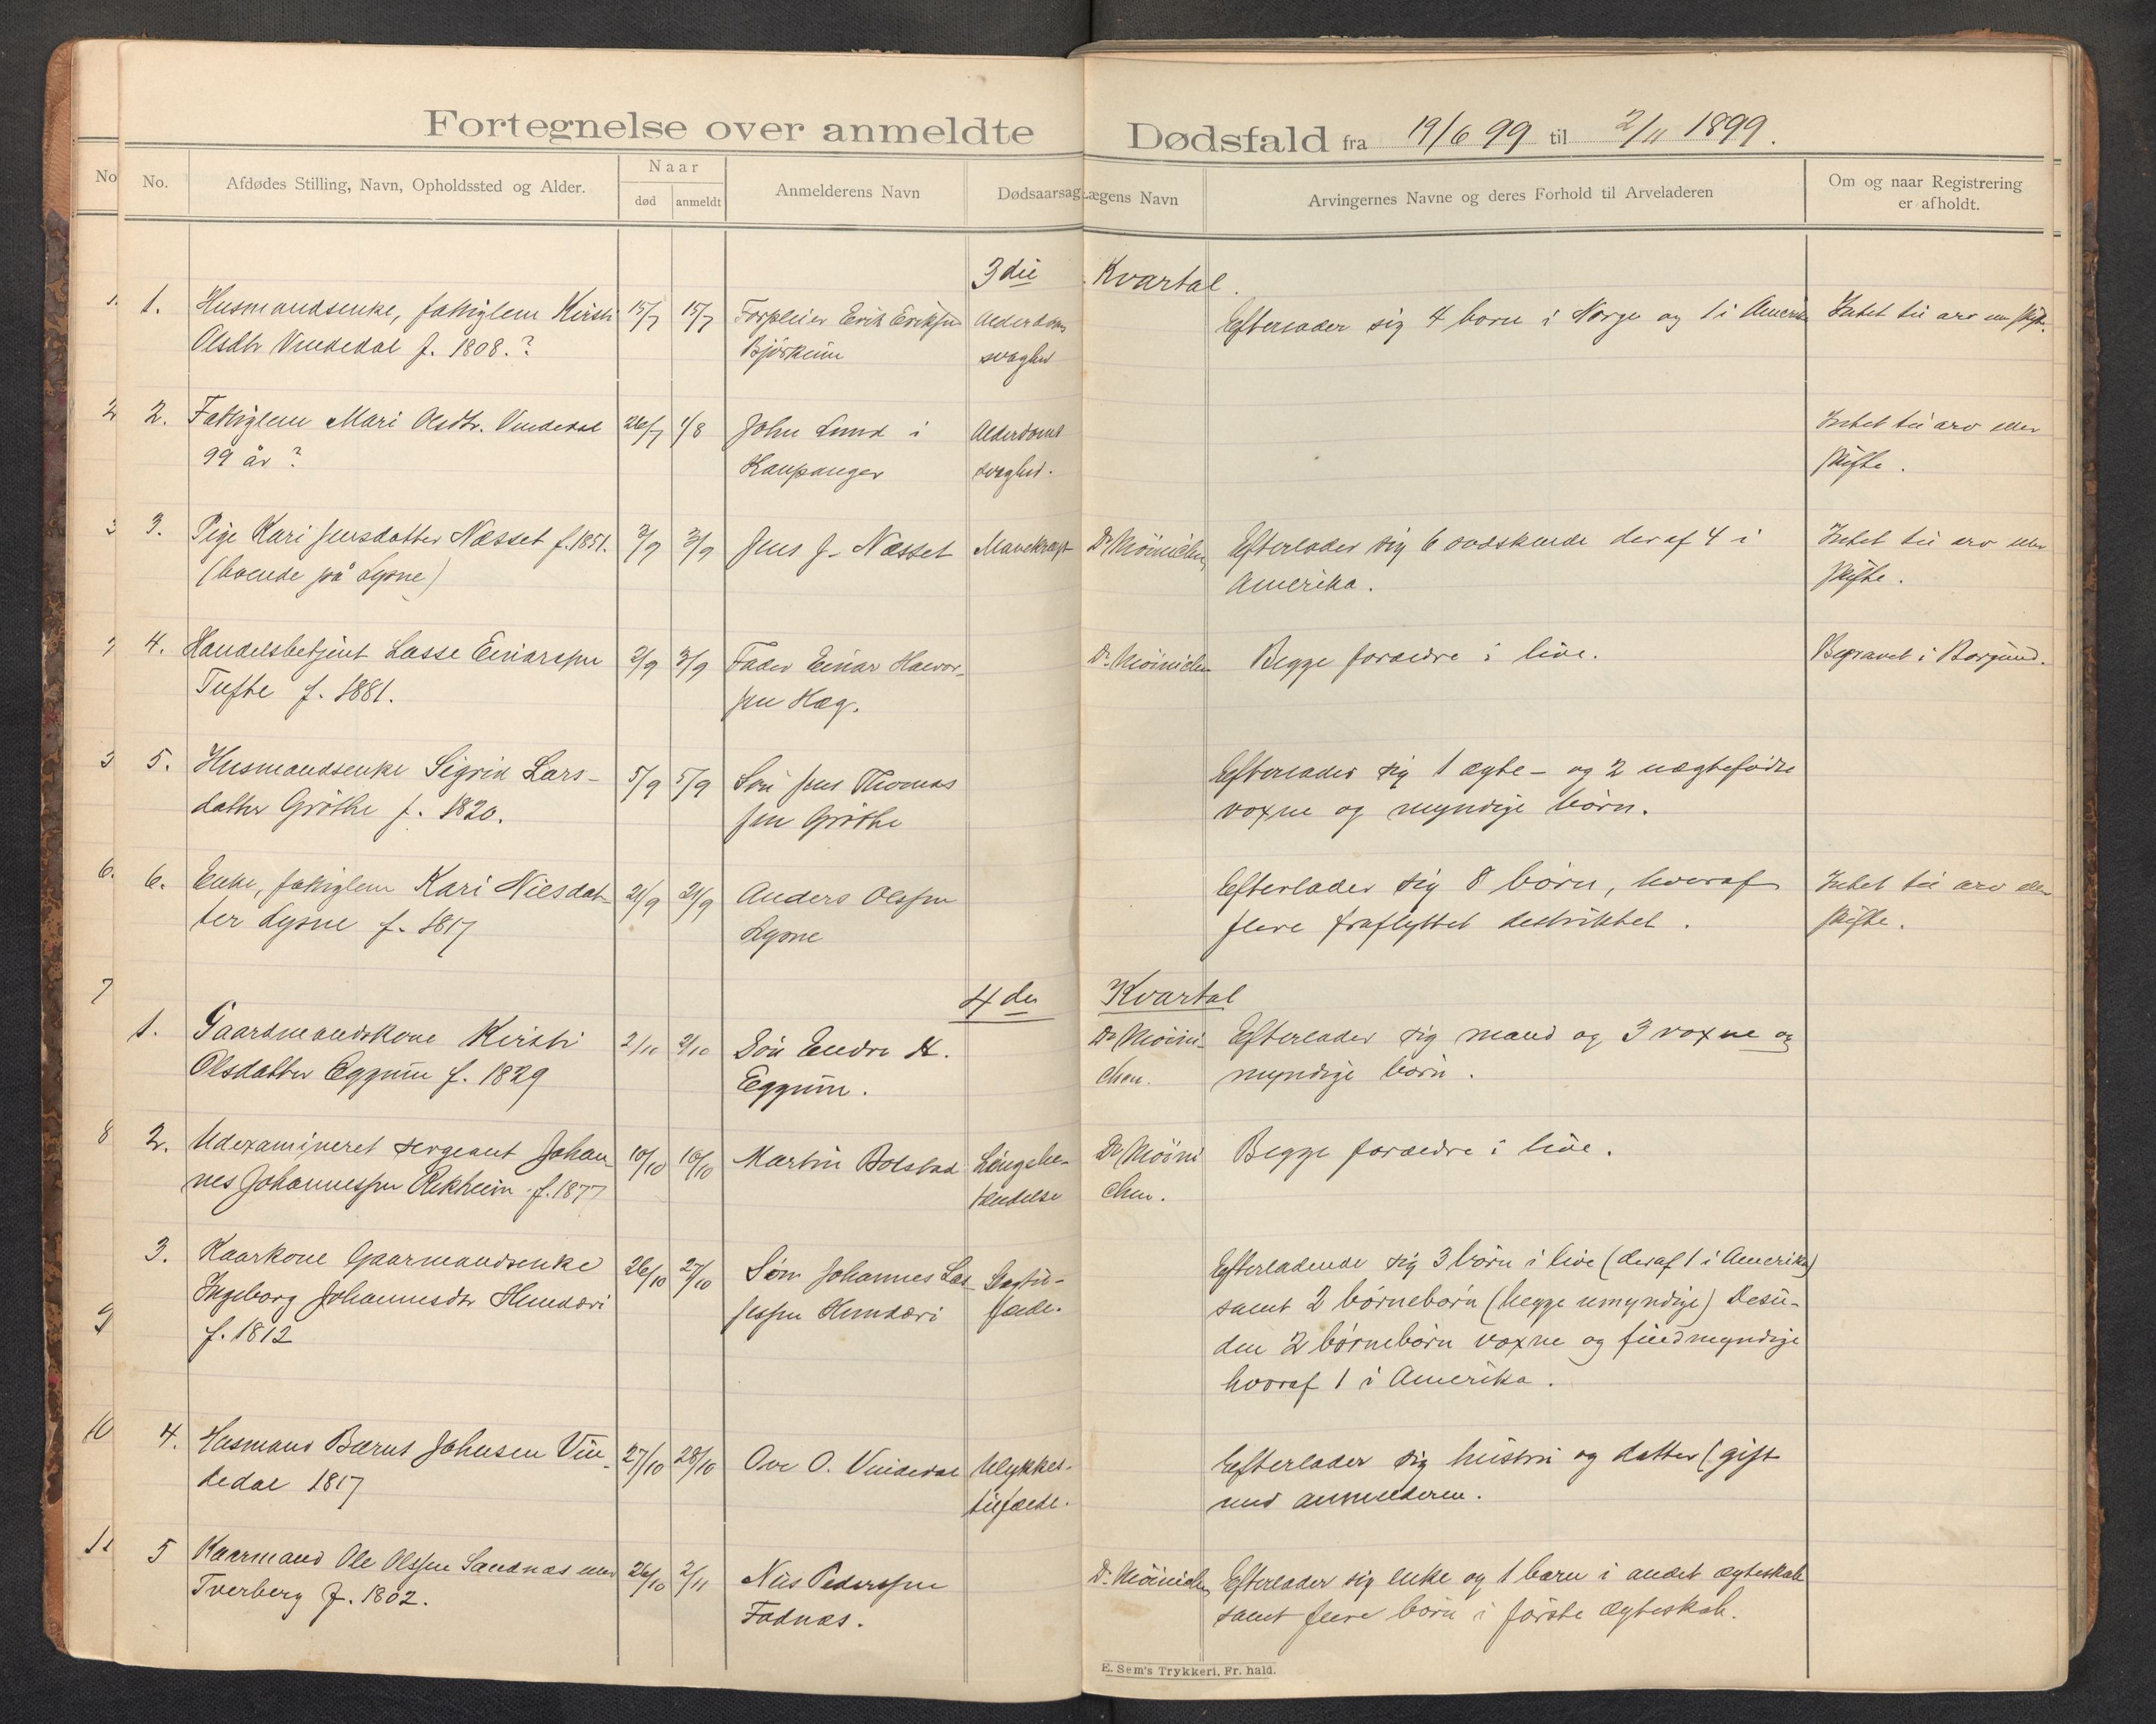 Fortegnelse over anmeldte Dødsfald fra 19/6 99 til 2/11 1899.
No
No.
Afdødes Stilling, Navn, Opholdssted og Alder.
Naar
død
anmeldt
Anmelderens Navn
Dødsaarsag
Lægens Navn
Arvingernes Navne og deres Forhold til Arveladeren
Om og naar Registrering
er afholdt.
3die Kvartal.
1. 1. Husmandsenke, fattiglem Kirsti
Olsdtr Vindedal f. 1808.?
15/7 15/7
Forpleier Erik Eriksen
Bjørkeim
Alderdoms
svaghed
Efterlader sig 4 børn i Norge og 1 i Amerika
Intet til arv
2 2. Fattiglem Mari Olsdtr. Vindedal
99 år?
26/7 1/8
John Lund i
Kaupanger
Alderdoms
svaghed.
Intet til arv eller
skifte.
3 3. Pige Kari Jensdatter Næsset f. 1851.
(boende på Lysne)
3/9 3/9
Jens J. Næsset
Mavekræft
Dr Møinichen
Efterlader sig 6 sødskende deraf 4 i
Amerika.
Intet til arv eller
skifte.
4. Handelsbetjent Lasse Einarsen
Tufte f. 1881.
2/9 3/9
Fader Einar Halvor-
sen Hæg.
Dr. Møinichen
Begge forældre i live.
Begravet i Borgund.
5. Husmandsenke Sigrid Lars-
datter Grøthe f. 1820.
5/9 5/9
Søn Jens Thomas
sen Grøthe
Efterlader sig 1 ægte- og 2 uægtefødte
voxne og myndige børn.
6. 6. Enke, fattiglem Kari Nilsdat-
ter Lysne f. 1817
21/9 21/9
Anders Olssen
Lysne
Efterlader sig 8 børn, hvoraf
flere fraflyttet destriktet.
Intet til arv eller
skifte.
4de Kvartal
7 1. Gaardmandskone Kirsti
Olsdatter Eggum f. 1829
2/10 2/10
Søn Endre K.
Eggum.
Dr Møini-
chen.
Efterlader sig mand og 3 voxne og
myndige børn.
8 2. Udexamineret sergeant Johan-
nes Johannessen Rikheim f. 1877
10/10 10/10
Martin Bolstad
Lungebe-
tændelse
Dr Møini
chen.
Begge forældre i live.
9 3. Kaarkone Gaarmandsenke
Ingeborg Johannesdtr Hunderi
f. 1812
26/10 27/10
Søn Johannes Las-
sessen Hunderi
Slagtil-
fælde.
Efterladende sig 3 børn i live (deraf 1 i Amerika)
samt 2 børnebørn (begge umyndige) Desu-
den 2 børnebørn voxne og fuldmyndige
hvoraf 1 i Amerika.
10 4. Husmand Bærnt Johnsen Vin-
dedal 1817
27/10 28/10
Ove O. Vindedal
Ulykkes-
tilfælde.
Efterlader sig hustru og datter (gift
med anmelderen.
11 5 Kaarmand Ole Olssen Sandnæs
Tverberg f. 1802.
26/10 2/11
Nils Pederssen
Fodnæs.
Dr. Møinichen
Efterlader sig enke og 1 barn i andet ægteskab
samt flere børn i første ægteskab.
E. Sem's Trykkeri, Fr. hald.